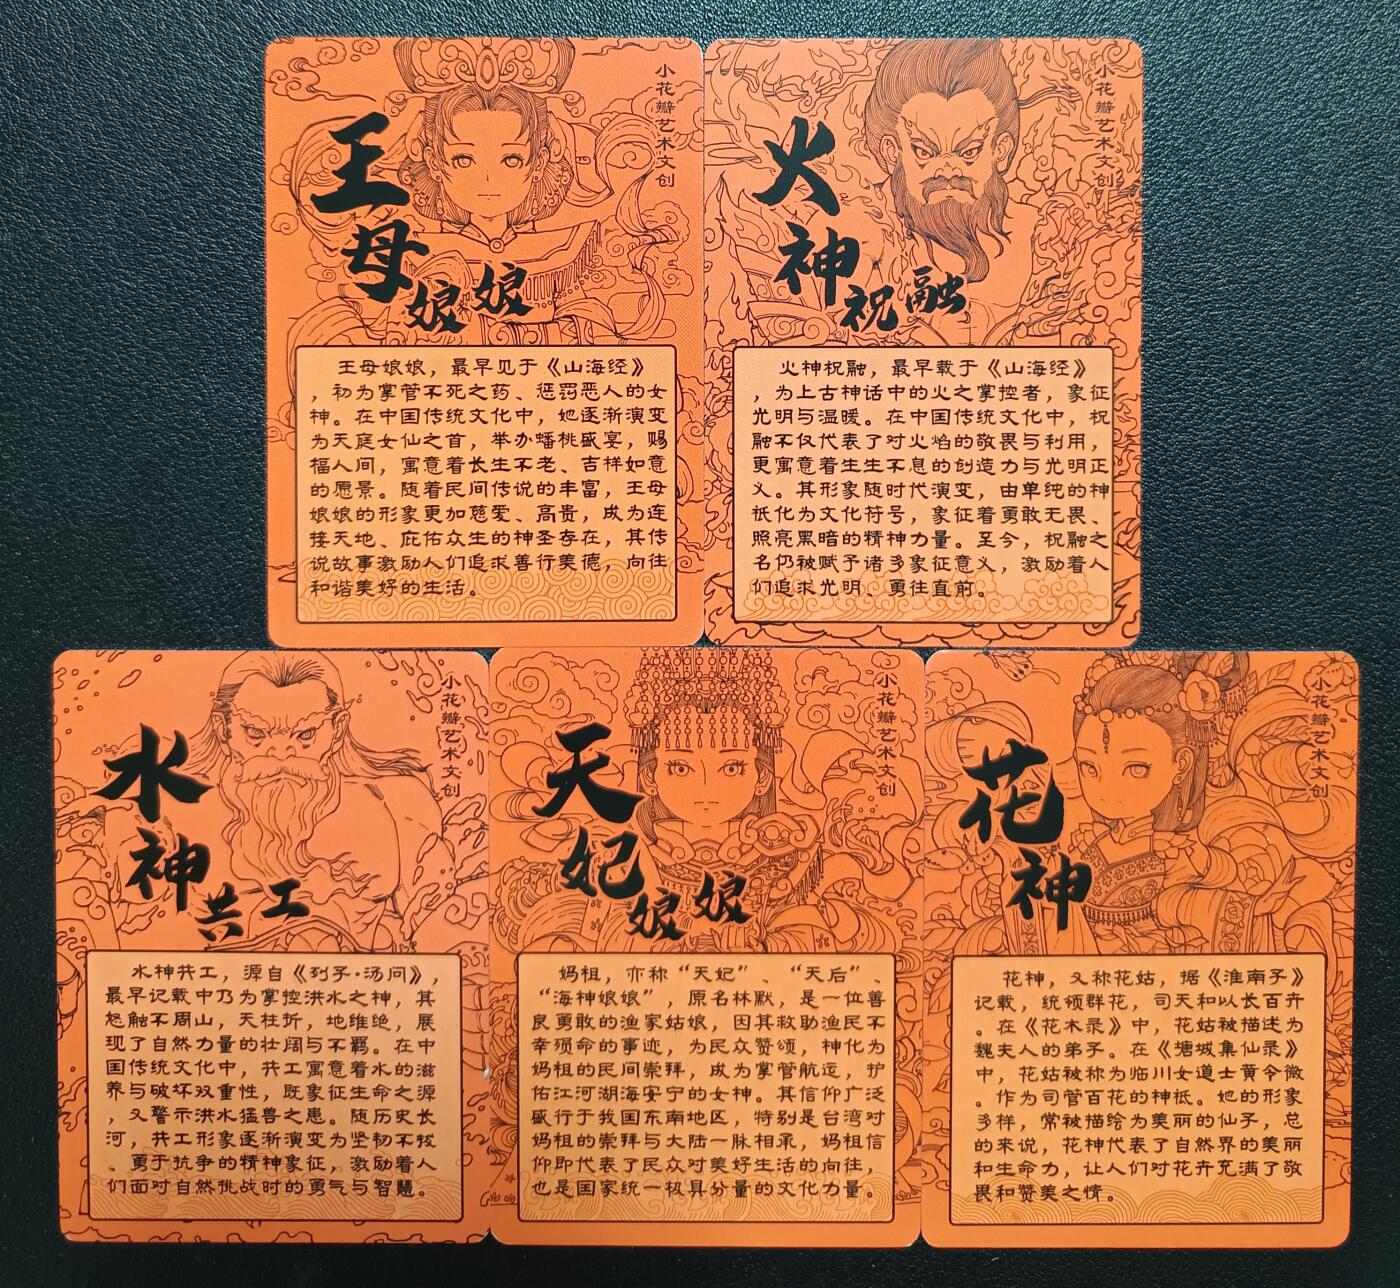 王母娘娘
小花瓣艺术文创
王母娘娘，最早见于《山海经》
，初为掌管不死之药、惩罚恶人的女
神。在中国传统文化中，她逐渐演变
为天庭女仙之首，举办蟠桃盛宴，赐
福人间，寓意着长生不老、吉祥如意
的愿景。随着民间传说的丰富，王母
娘娘的形象更加慈爱、高贵，成为连
接天地、庇佑众生的神圣存在，其传
说故事激励人们追求善行美德，向往
和谐美好的生活。
火神祝融
小花瓣艺术文创
火神祝融，最早载于《山海经》
，为上古神话中的火之掌控者，象征
光明与温暖。在中国传统文化中，祝
融不仅代表了对火焰的敬畏与利用，
更寓意着生生不息的创造力与光明正
义。其形象随时代演变，由单纯的神
祇化为文化符号，象征着勇敢无畏、
照亮黑暗的精神力量。至今，祝融之
名仍被赋予诸多象征意义，激励着人
们追求光明、勇往直前。
水神共工
小花瓣艺术文创
水神共工，源自《列子·汤问》，
最早记载中乃为掌控洪水之神，其
怒触不周山，天柱折，地维绝，展
现了自然力量的壮阔与不羁。在中
国传统文化中，共工寓意着水的滋
养与破坏双重性，既象征生命之源
，又警示洪水猛兽之患。随历史长
河，共工形象逐渐演变为坚韧不拔
、勇于抗争的精神象征，激励着人
们面对自然挑战时的勇气与智慧。
天妃娘娘
小花瓣艺术文创
妈祖，亦称“天妃”、“天后”、
“海神娘娘”，原名林默，是一位善
良勇敢的渔家姑娘，因其救助渔民不
幸殒命的事迹，为民众赞颂，神化为
妈祖的民间崇拜，成为掌管航运，护
佑江河湖海安宁的女神。其信仰广泛
盛行于我国东南地区，特别是台湾对
妈祖的崇拜与大陆一脉相承，妈祖信
仰即代表了民众对美好生活的向往，
也是国家统一极具分量的文化力量。
花神
小花瓣艺术文创
花神，又称花姑，据《淮南子》
记载，统领群花，司天和以长百卉
。在《花木录》中，花姑被描述为
魏夫人的弟子。在《墉城集仙录》
中，花姑被称为临川女道士黄令微
。作为司管百花的神祇。她的形象
多样，常被描绘为美丽的仙子，总
的来说，花神代表了自然界的美丽
和生命力，让人们对花卉充满了敬
畏和赞美之情。